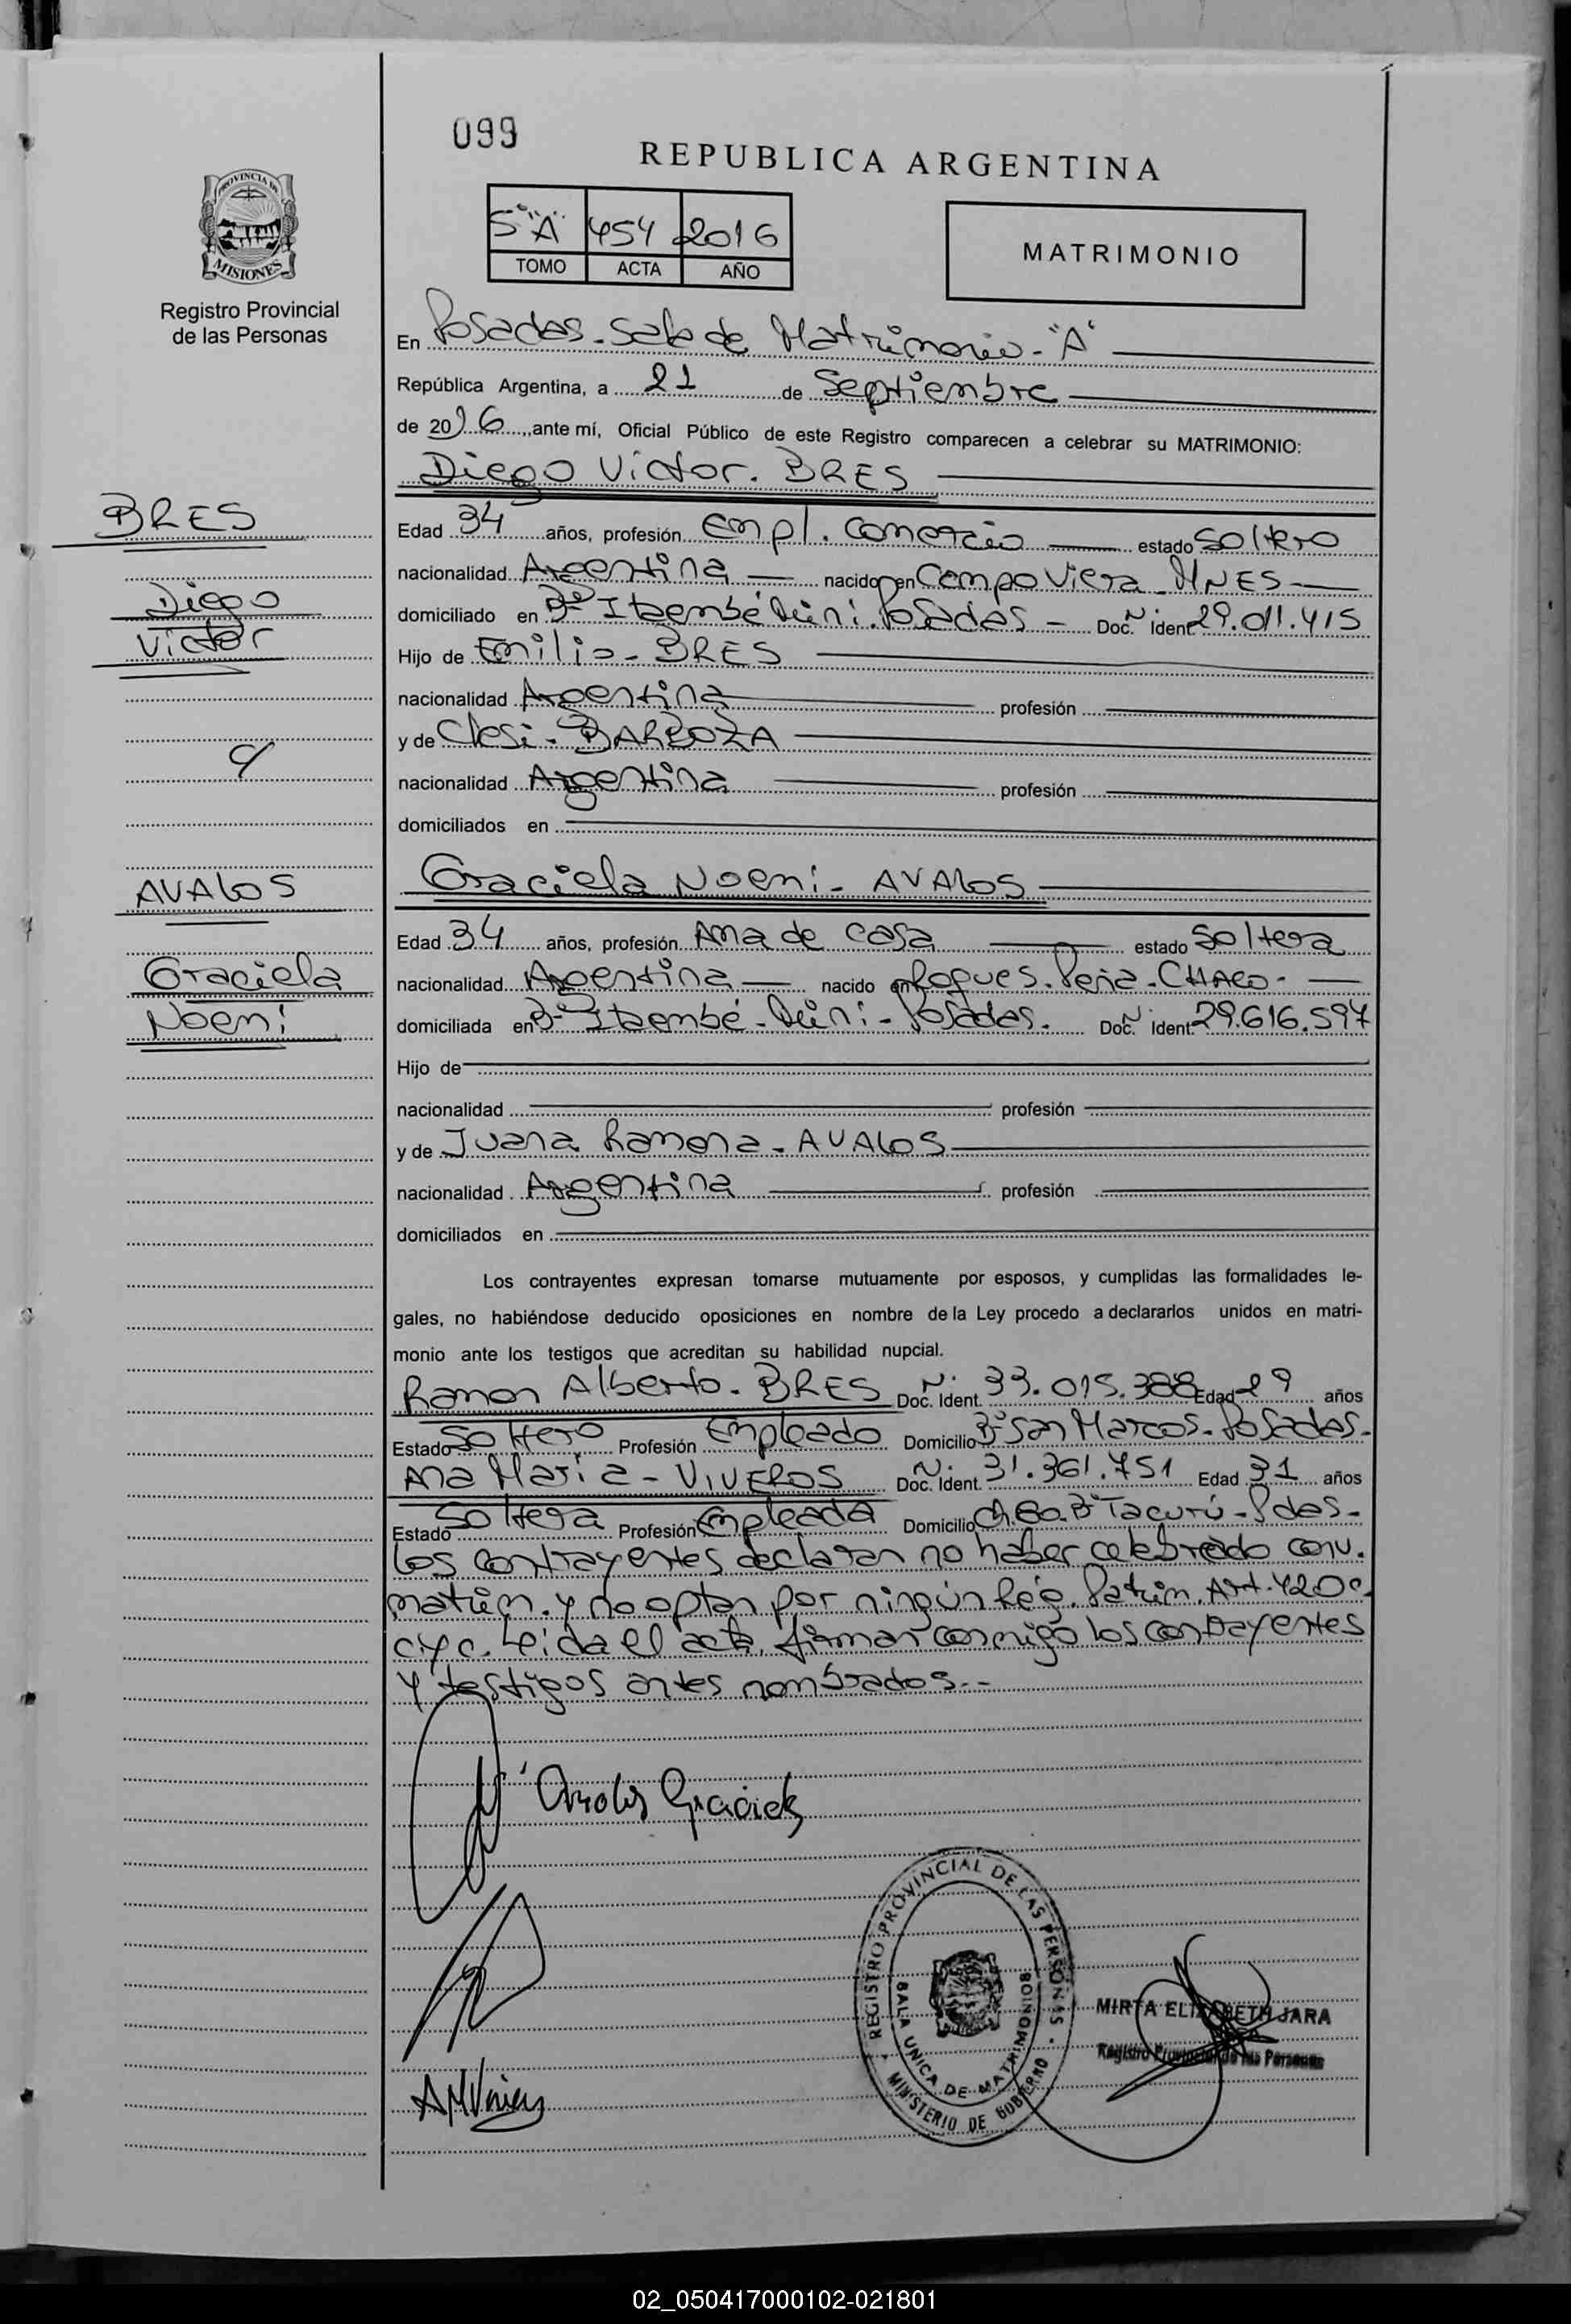 099
REPUBLICA ARGENTINA
5º "A" 454 2016
TOMO ACTA AÑO
MATRIMONIO
PROVINCIA DE
MISIONES
Registro Provincial
de las Personas
En Posadas - Sala de Matrimonio - "A"
República Argentina, a 21 de Septiembre
de 2016, ante mí, Oficial Público de este Registro comparecen a celebrar su MATRIMONIO:
Diego Victor. BRES
BRES
Diego
Victor
c/
AVALOS
Graciela
Noemi
Edad 34 años, profesión Empl. Comercio estado Soltero
nacionalidad Argentina nacido en Campo Viera - MNES -
domiciliado en Bº Itaembé Miní. Posadas - Doc. Nº Ident 29.011.415
Hijo de Emilio - BRES
nacionalidad Argentina profesión
y de Clesi - BARBOZA
nacionalidad Argentina profesión
domiciliados en
Graciela Noemi - AVALOS
Edad 34 años, profesión Ama de casa estado Soltera
nacionalidad Argentina nacido en Roques. Peña - CHACO -
domiciliada en Bº Itaembé - Miní - Posadas. Doc. Nº Ident 29.616.597
Hijo de
nacionalidad profesión
y de Juana Ramona - AVALOS
nacionalidad Argentina profesión
domiciliados en
Los contrayentes expresan tomarse mutuamente por esposos, y cumplidas las formalidades le-
gales, no habiéndose deducido oposiciones en nombre de la Ley procedo a declararlos unidos en matri-
monio ante los testigos que acreditan su habilidad nupcial.
Ramon Alberto - BRES Doc. Nº Ident. 33.015.388 Edad 29 años
Estado Soltero Profesión Empleado Domicilio Bº San Marcos - Posadas -
Ana Maria - VIVEROS Doc. Nº Ident. 31.361.751 Edad 31 años
Estado Soltera Profesión Empleada Domicilio Ch. 80. Bº Tacurú - Pdas -
Los contrayentes declaran no haber celebrado conv.
matrim. y no optan por ningún Rég. Patrim. Art. 420 c.
c y c. Leída el acta, firman conmigo los contrayentes
y testigos antes nombrados. -
Avalos Graciela
AMViveros
REGISTRO PROVINCIAL DE LAS PERSONAS
SALA UNICA DE MATRIMONIOS
MINISTERIO DE GOBIERNO
MIRTA ELIZABETH JARA
Registro Provincial de las Personas
02_050417000102-021801